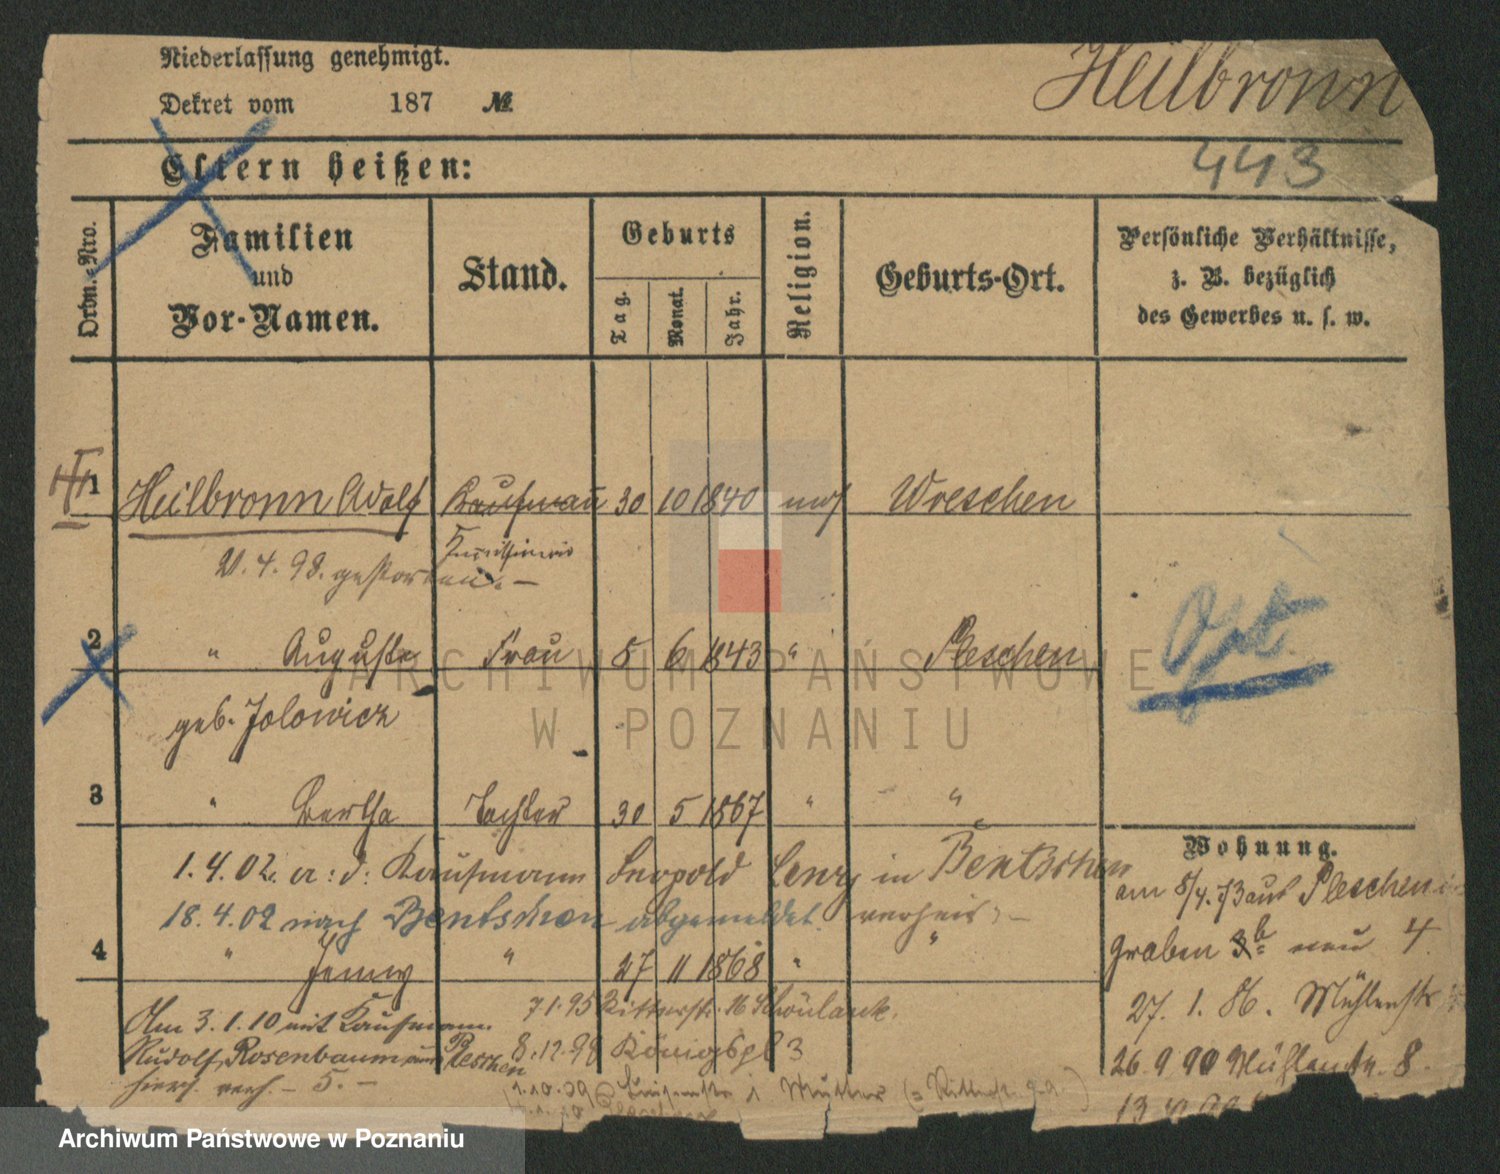 Niederlassung genehmigt.
Dekret vom 187 №
Heilbronn
443
Eltern heißen:
Ordn.-Nro.
Familien
und
Vor-Namen.
Stand.
Geburts
Tag.
Monat.
Jahr.
Religion.
Geburts-Ort.
Persönliche Verhältnisse,
z. B. bezüglich
des Gewerbes u. s. w.
1 Heilbronn Adolf Kaufmann 30 10 1840 mos Wreschen
21. 4. 98. gestorben. —
2 " Auguste Frau 5 6 1843 " Pleschen
geb. Jolowicz
3 " Bertha Tochter 30 5 1867 " "
Wohnung.
1. 4. 02. a: d: Kaufmann Leopold Levy in Bentschen
18. 4. 02 nach Bentschen abgemeldet. verheir: —
am 5/4. 73 aus Pleschen
4 " Jenny " 27 11 1868 " "
Graben 3b neu 4
Am 3. 1. 10 mit Kaufmann
Rudolf Rosenbaum aus Pleschen
hier verh. — 5. —
7 1. 95 Ritterstr. 16 Schönlank.
8. 12. 99 Königspl 3
27. 1. 86. Mühlenstr
26. 9 90 Mühlenstr. 8.
1. 10. 09 Mutter
ARCHIWUM PAŃSTWOWE
W POZNANIU
Archiwum Państwowe w Poznaniu